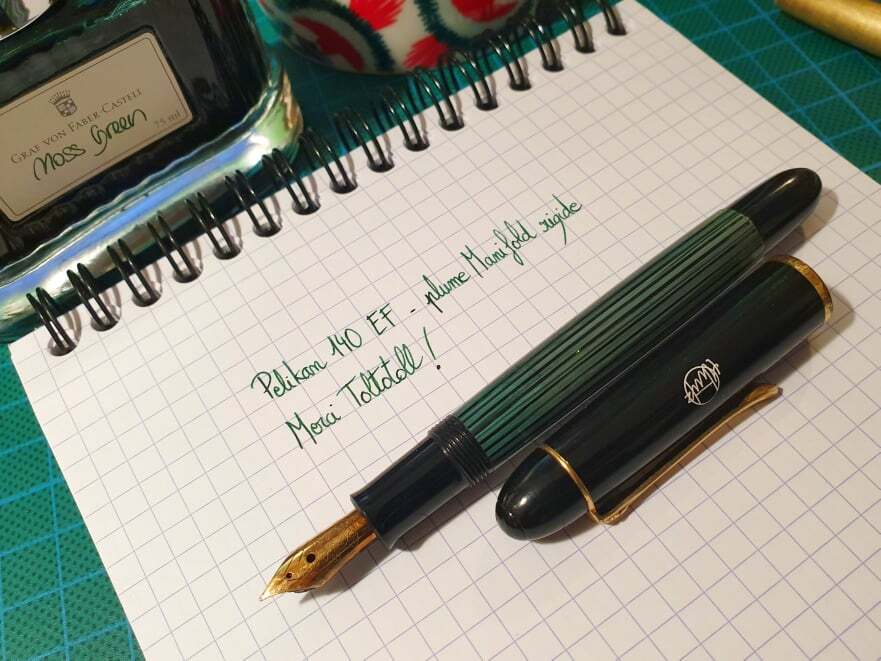 GRAF VON FABER CASTELL
Moss Green
75 ml
Pelikan 140 EF - plume Manifold rigide
Merci Toltotoll !